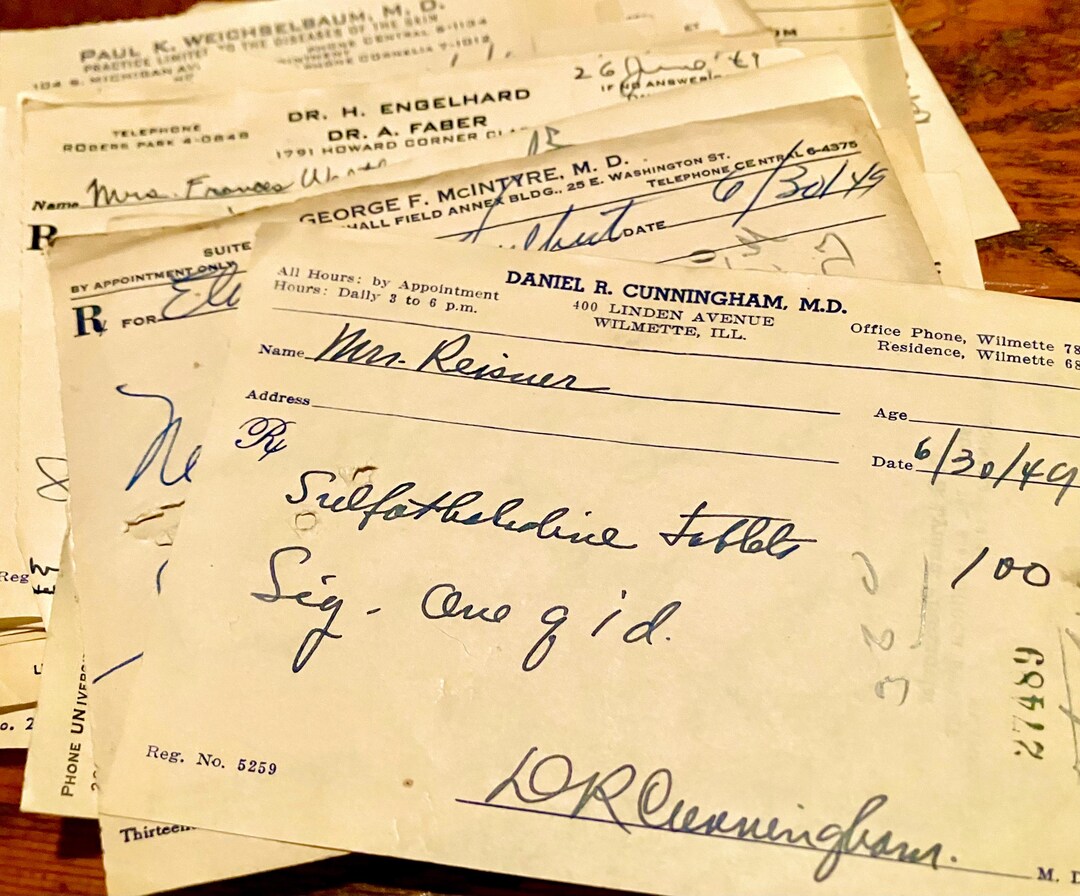 PAUL K. WEICHSELBAUM, M. D.
PRACTICE LIMITED TO THE DISEASES OF THE SKIN
PHONE CENTRAL 6-1134
104 S. MICHIGAN AV
PHONE CORNELIA 7-1012
26 June '49
IF NO ANSWER
DR. H. ENGELHARD
DR. A. FABER
1791 HOWARD CORNER
TELEPHONE
ROGERS PARK 4-0848
Name Mrs. Frances
R
GEORGE F. McINTYRE, M. D.
HALL FIELD ANNEX BLDG., 25 E. WASHINGTON ST.
TELEPHONE CENTRAL 6-4375
DATE 6/30/49
SUITE
BY APPOINTMENT ONLY
Rx FOR
Reg
PHONE UNIVERS
All Hours: by Appointment
Hours: Daily 3 to 6 p.m.
DANIEL R. CUNNINGHAM, M.D.
400 LINDEN AVENUE
WILMETTE, ILL.
Office Phone, Wilmette 78
Residence, Wilmette 68
Name Mrs. Reisner
Age
Address
Date 6/30/49
Rx
Sulfathaladine Tablets
100
Sig - One q i d.
27489
Reg. No. 5259
DRCunningham.
M. D
Thirteen